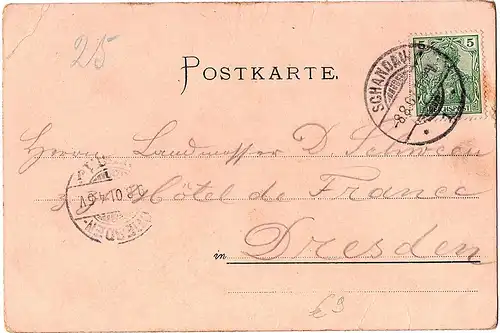 25
POSTKARTE.
5 5
SCHANDAU
8.8.0
Herrn Landmesser D.
Hôtel de France
in Dresden
DRESDEN-
8.01.